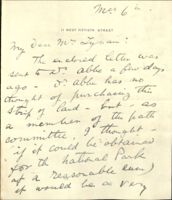 Mch 6th
11 WEST FIFTIETH STREET
My dear Mr Lyman:
The enclosed letter was
sent to Dr. Abbe a few days
ago - Dr Abbe has no
thought of purchasing this
strip of land - but - as
a member of the path
committee, I thought -
if it could be obtained
for the National Park
at a reasonable sum,
it would be a very